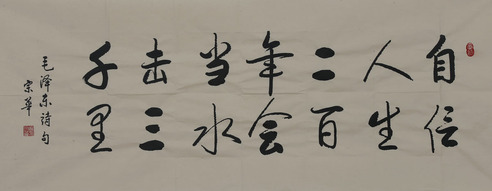 自信
人生
二百
年会
当水
击三
千里
毛泽东诗句
宗华